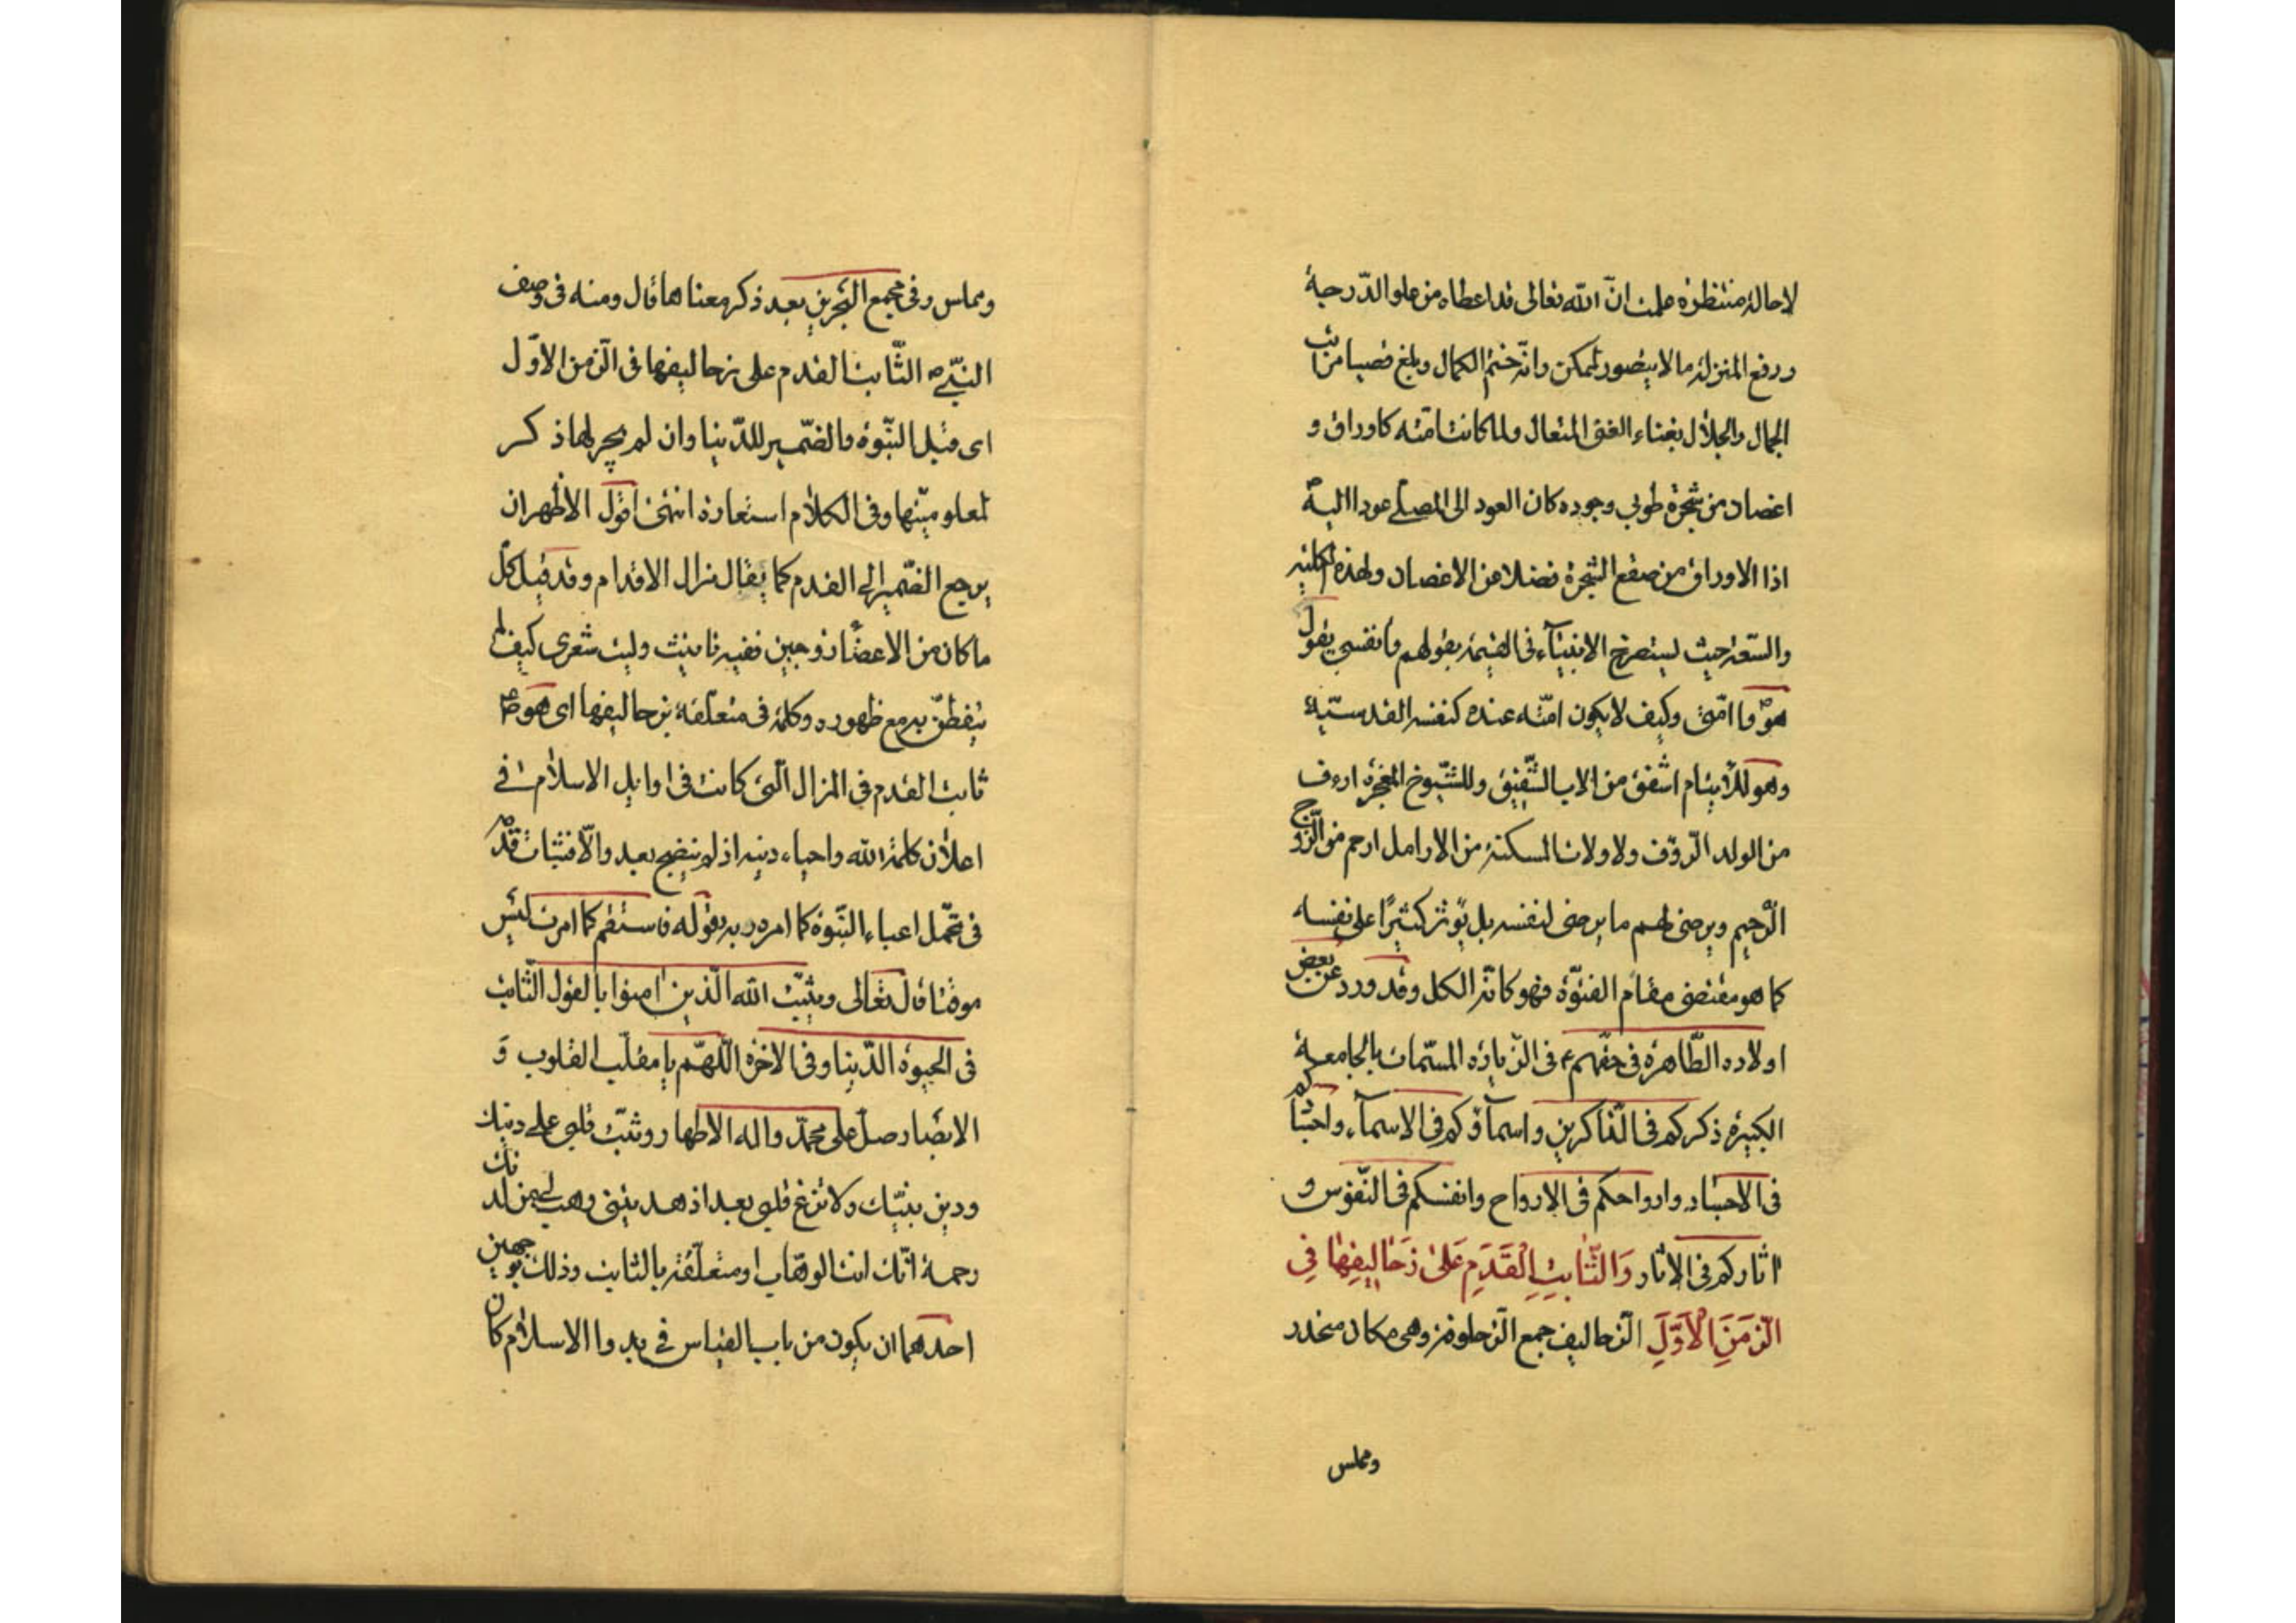 لاحالة منتظرة علمت انّ الله تعالى قد اعطاه من علو الدّرجة
ورفع المنزلة ما لا يتصور لممكن وانّه ختم الكمال وبلغ نصيبا من اثب
الجمال والجلال بغناء الغنى المتعال ولما كانت امّته كاوراق و
اغصان من شجرة طوبى وجوده كان العود الى المصلّى عودا اليه ص
اذا الاوراق من صقع الشجرة فضلا عن الاغصان ولهذه الكلّية
والسّعة حيث ليستصرخ الانبيآء فى القيمة بقولهم وانفسى يقول
هو ص وا امّتى وكيف لا يكون امّته عنده كنفسه القدسيّة
وهو للأيتام اشفق من الاب الشّفيق وللشّيوخ العجزة ارءف
من الولد الرّؤف ولاولات المسكنة من الارامل ارحم من الزّوج
الرّحيم ويرضى لهم ما يرضى لنفسه بل يؤثر كثيرًا على نفسه
كما هو مقتضى مقام الفتوّة فهو كانّه الكل وقد ورد عن بعض
اولاده الطّاهرة فى حقّهم ع فى الزّيارة المسمّات بالجامعة
الكبيرة ذكركم فى الذّاكرين واسمآؤكم فى الاسمآء واجسادكم
فى الاجساد وارواحكم فى الارواح وانفسكم فى النّفوس و
اثاركم فى الاثار وَالثّابِتِ الْقَدَمِ عَلىٰ زَحٰالِيفِهٰا فِى
الزّمَنِ الْاَوَّلِ الزحاليف جمع الزحلوفة وهى مكان منحدر
ومملس
ومملس وفى مجمع البحرين بعد ذكر معناها قال ومنه فى وصف
النبىّ ص الثّابت القدم على زحاليفها فى الزمن الاوّل
اى قبل النبّوة والضّمير للدّنيا وان لم يجر لها ذكر
لمعلوميّتها وفى الكلام استعارة انتهى اقول الاظهر ان
يرجع الضّمير الى القدم كما يقال مزال الاقدام وقد قيل كلّ
ما كان من الاعضاء زوجين ففيه تانيث وليت شعرى كيف لم
يتفطّن به مع ظهوره وكلمة فى متعلّقة بزحاليفها اى هو ص
ثابت القدم فى المزال الّتى كانت فى اوايل الاسلام فى
اعلان كلمة الله واحياء دينه اذ لم ينضج بعد والّا فثبات قدمه
فى تحمّل اعباء النبّوة كما امره ربه بقوله فاستقم كما امرت ليس
موقتا قال تعالى ويثبّت الله الّذين امنوا بالقول الثّابت
فى الحيوة الدّنيا وفى الاخرة اللّهمّ يا مقلّب القلوب وَ
الابصار صلّ على محمّد واله الاطهار وثبّت قلبى على دينك
ودين نبيّك ولا تزغ قلبى بعد اذ هديتنى وهب لى من لدنك
رحمة انّك انت الوهّاب او متعلّقة بالثابت وذلك بوجهين
احدهما ان يكون من باب القياس فى بدو الاسلام كان